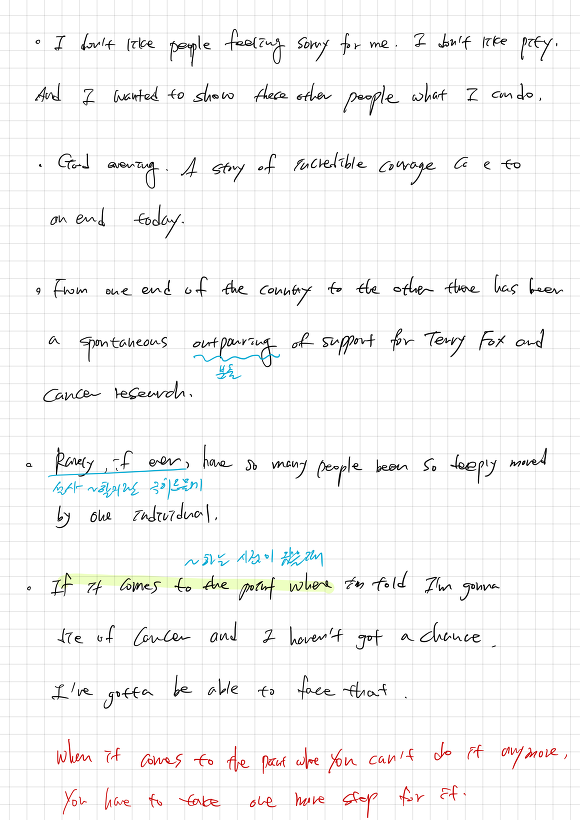 • I don't like people feeling sorry for me. I don't like pity.
And I wanted to show these other people what I can do.
• Good evening. A story of incredible courage c e to
an end today.
• From one end of the country to the other there has been
a spontaneous outpouring of support for Terry Fox and
분출
Cancer research.
• Rarely, if ever, have so many people been so deeply moved
설사 ~할지라도 극히드물게
by one individual.
~하는 시점이
• If it comes to the point where I'm told I'm gonna
die of Cancer and I haven't got a chance.
I've gotta be able to face that.
When it comes to the point where you can't do it anymore,
You have to take one more step for it.